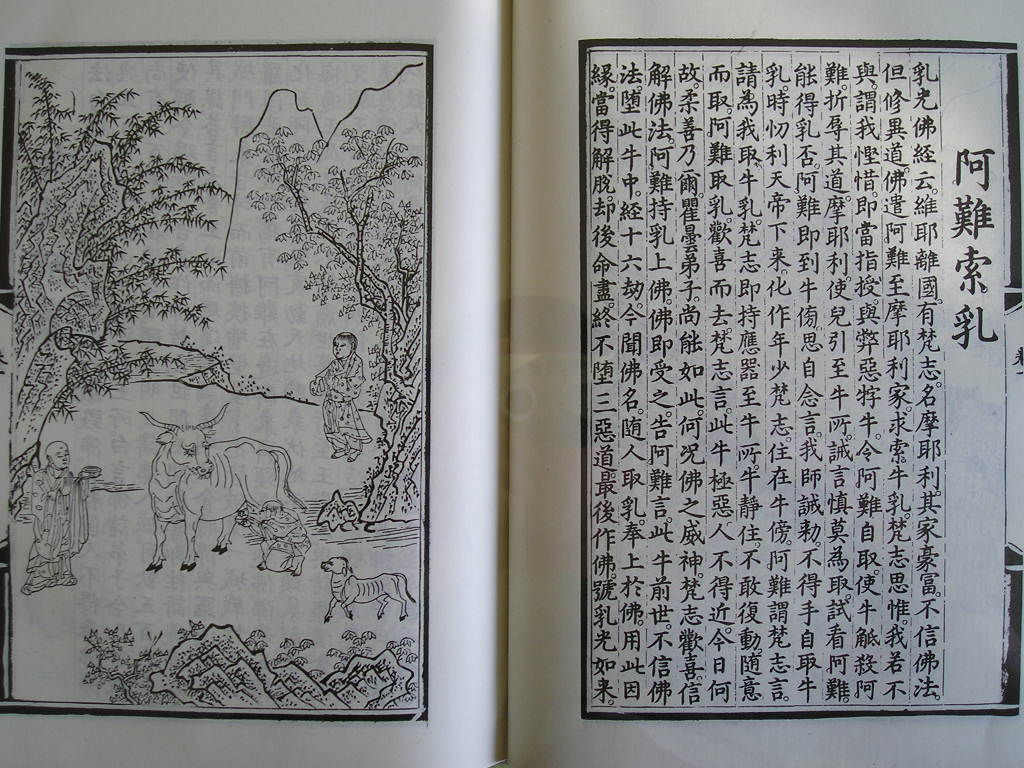 阿難索乳
乳光佛經云。維耶離國。有梵志。名摩耶利。其家豪富。不信佛法。
但修異道。佛遣阿難。至摩耶利家。求索牛乳。梵志思惟。我若不
與。謂我慳惜。即當指授。與弊惡牸牛。令阿難自取。使牛觝殺阿
難。折辱其道。摩耶利使兒引至牛所。誡言。慎莫為取。試看阿難。
能得乳否。阿難即到牛傍。思自念言。我師誡勑。不得手自取牛
乳。時忉利天帝下来。化作年少梵志。住在牛傍。阿難謂梵志言。
請為我取牛乳。梵志即持應器至牛所。牛靜住。不敢復動。隨意
而取。阿難取乳。歡喜而去。梵志言。此牛極惡。人不得近。今日何
故。柔善乃爾。瞿曇弟子。尚能如此。何況佛之威神。梵志歡喜。信
解佛法。阿難持乳上佛。佛即受之。告阿難言。此牛前世。不信佛
法。墮此牛中。經十六劫。今聞佛名。隨人取乳。奉上於佛。用此因
緣。當得解脫。却後命盡。終不墮三惡道。最後作佛。號乳光如来。